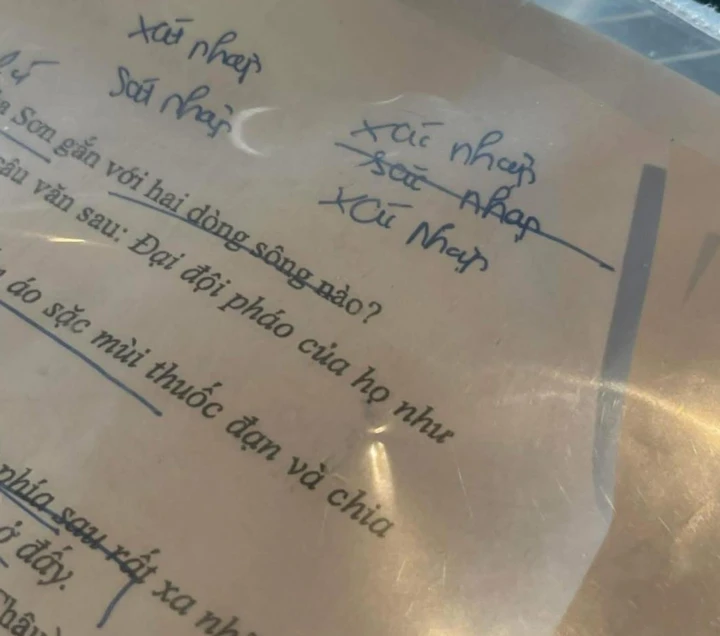 xát nhập
Sát nhập
xác nhập
sác nhập
xát nhập
a Sơn gắn với hai dòng sông nào?
câu văn sau: Đại đội pháo của họ như
áo sặc mùi thuốc đạn và chia
phía sau rất xa
ở đấy.